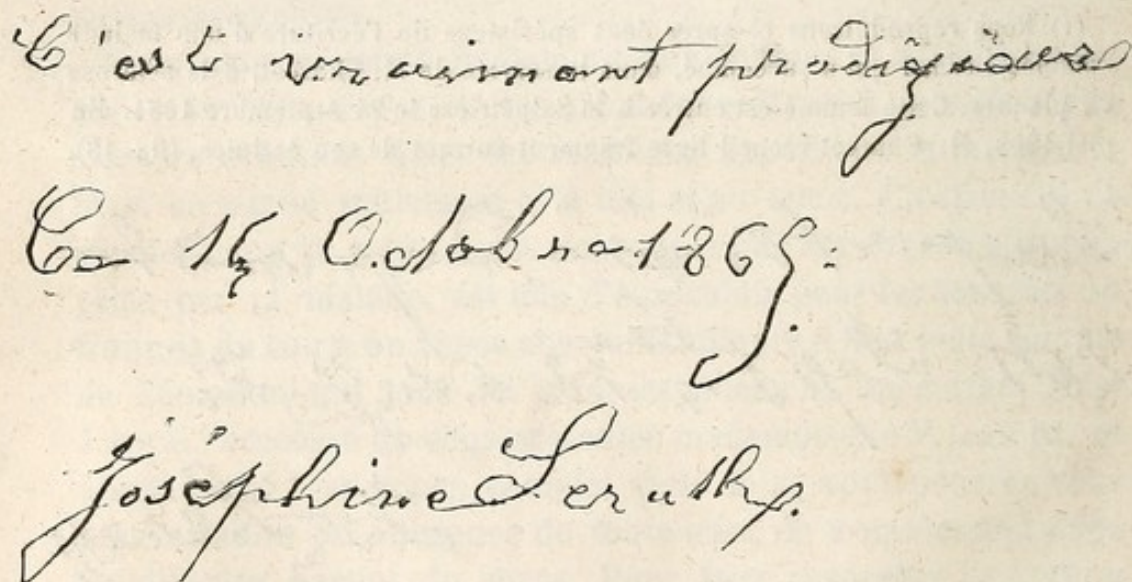 C'est vraiment prodigieux
Ce 15 Octobre 1865.
Joséphine Leruth.